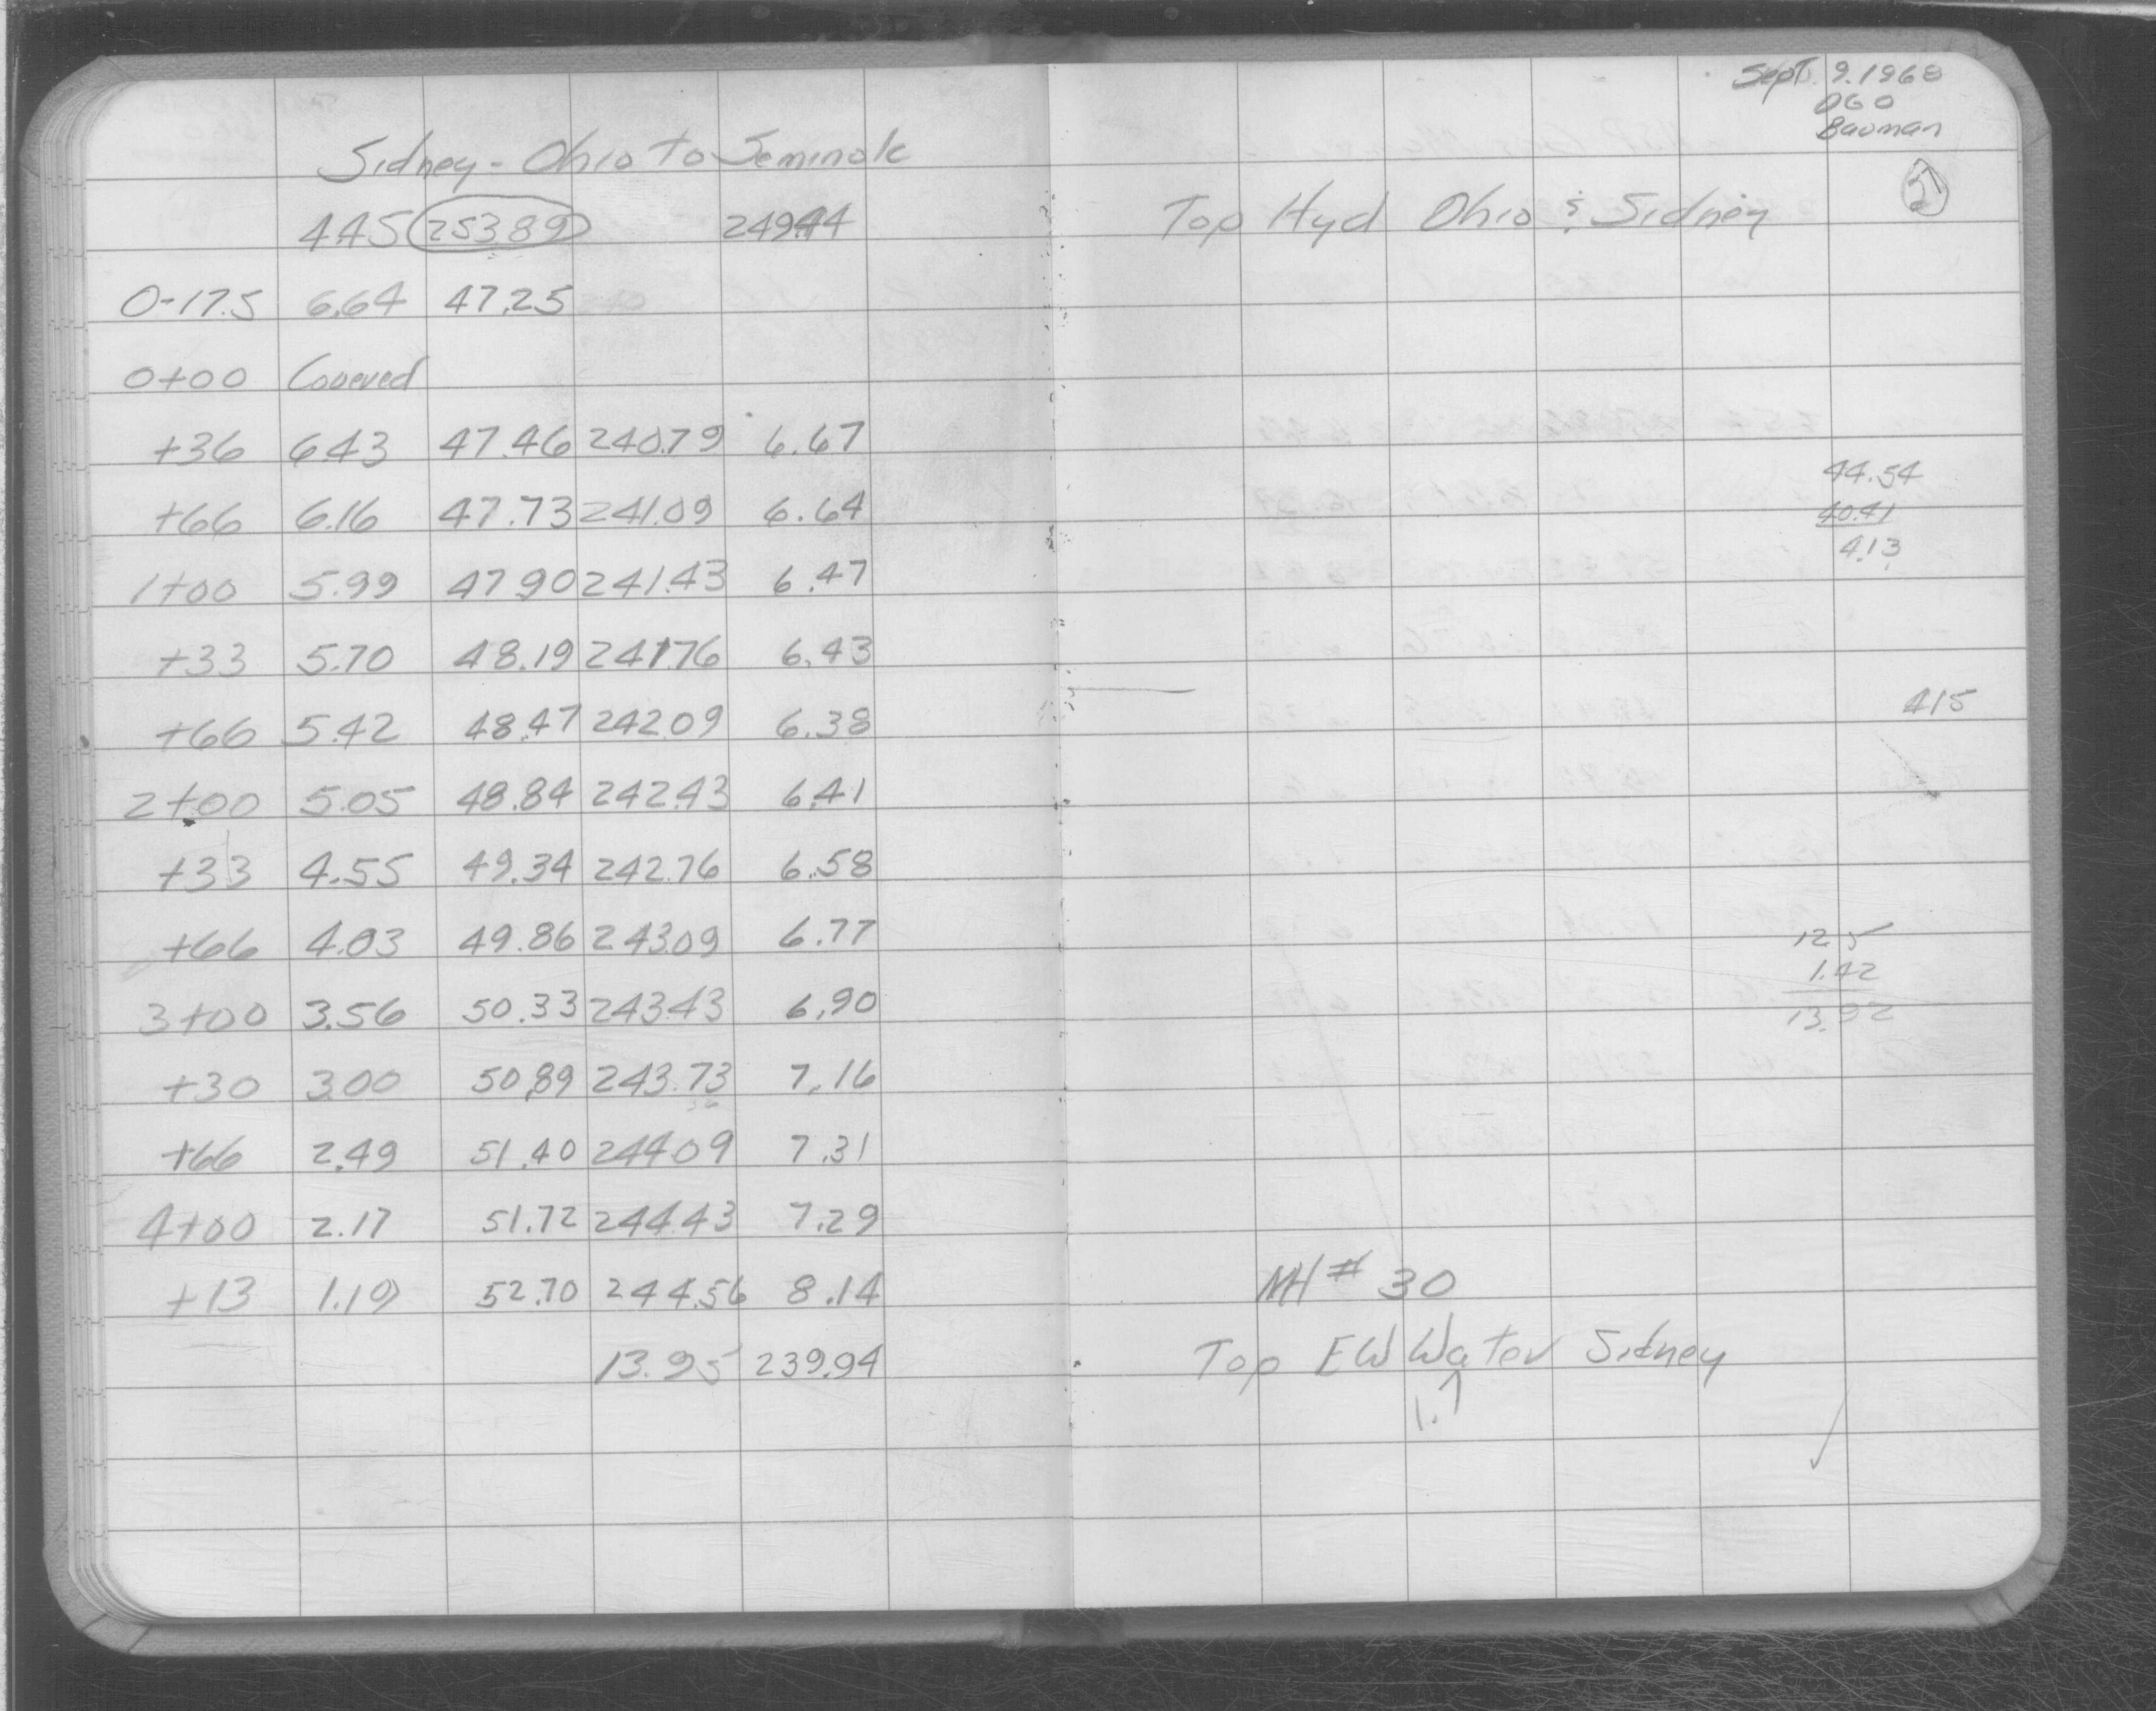 Sidney - Ohio to Seminole
4.45 253.89 249.44
0-17.5 6.64 47.25
0+00 Covered
+36 6.43 47.46 240.79 6.67
+66 6.16 47.73 241.09 6.64
1+00 5.99 47.90 241.43 6.47
+33 5.70 48.19 241.76 6.43
+66 5.42 48.47 242.09 6.38
2+00 5.05 48.84 242.43 6.41
+33 4.55 49.34 242.76 6.58
+66 4.03 49.86 243.09 6.77
3+00 3.56 50.33 243.43 6.90
+30 3.00 50.89 243.73 7.16
+66 2.49 51.40 244.09 7.31
4+00 2.17 51.72 244.43 7.29
+13 1.19 52.70 244.56 8.14
13.95 239.94
Sept. 9. 1968
OGO
Bauman
Top Hyd Ohio & Sidney
44.54
40.41
4.13
415
12.5
1.42
13.92
MH # 30
Top EW Water Sidney
1.7